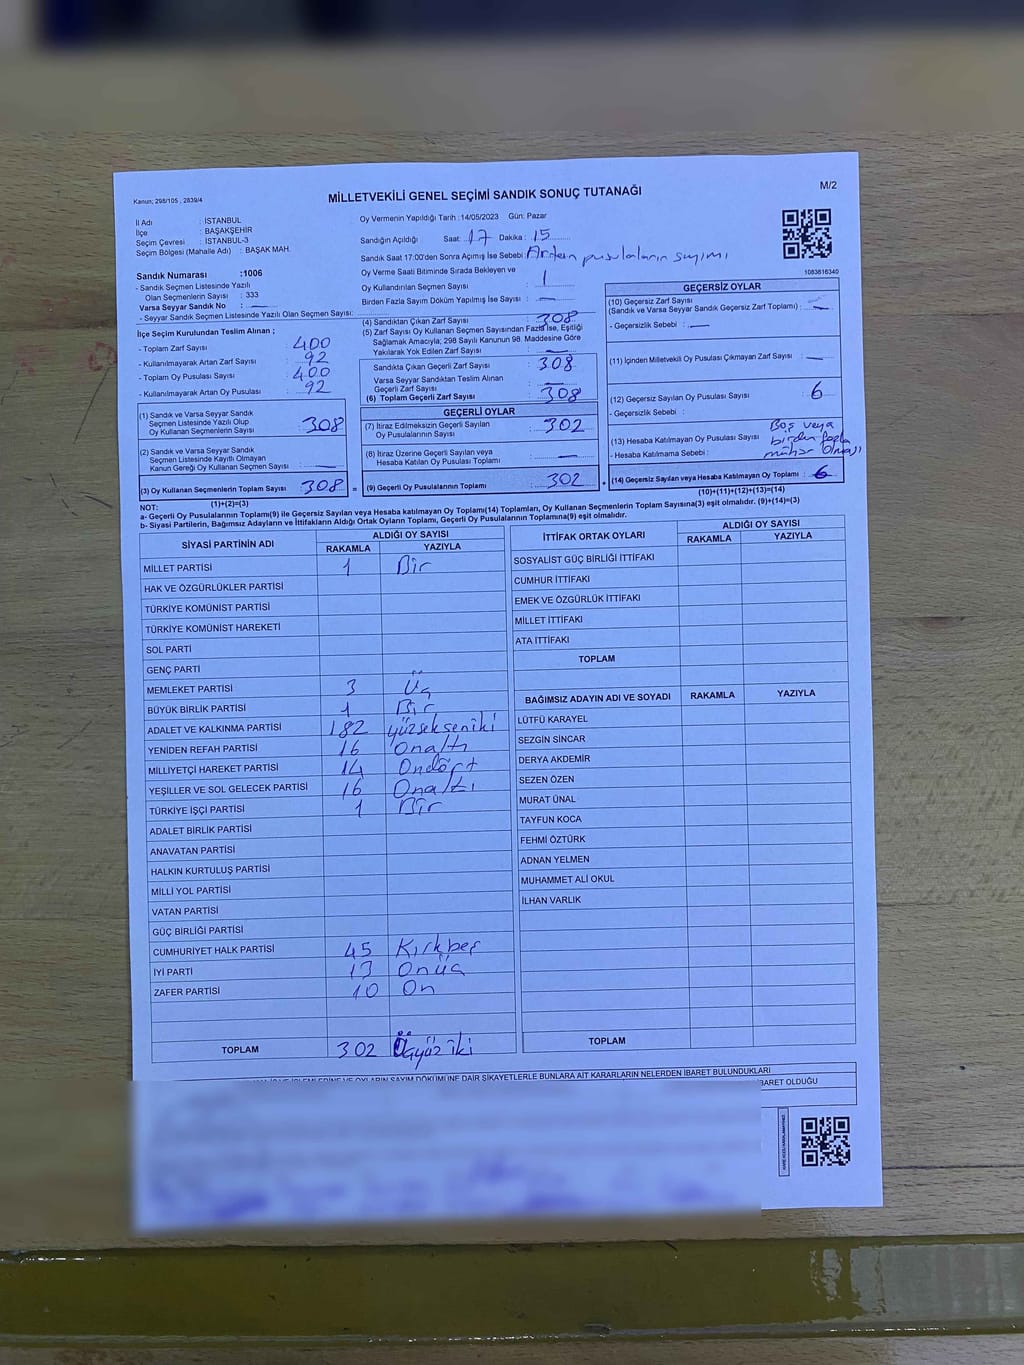 Kanun; 298/105 , 2839/4
MİLLETVEKİLİ GENEL SEÇİMİ SANDIK SONUÇ TUTANAĞI
M/2
İl Adı : İSTANBUL
İlçe : BAŞAKŞEHİR
Seçim Çevresi : İSTANBUL-3
Seçim Bölgesi (Mahalle Adı) : BAŞAK MAH.
Oy Vermenin Yapıldığı Tarih :14/05/2023 Gün: Pazar
Sandığın Açıldığı Saat: 17 Dakika : 15
Sandık Saat 17:00'den Sonra Açımış İse Sebebi: Artan pusulaların sayımı
Oy Verme Saati Bitiminde Sırada Bekleyen ve
Oy Kullandırılan Seçmen Sayısı : 1
Birden Fazla Sayım Döküm Yapılmış İse Sayısı : —
1083616340
Sandık Numarası :1006
- Sandık Seçmen Listesinde Yazılı
Olan Seçmenlerin Sayısı : 333
Varsa Seyyar Sandık No : —
- Seyyar Sandık Seçmen Listesinde Yazılı Olan Seçmen Sayısı:
İlçe Seçim Kurulundan Teslim Alınan ;
- Toplam Zarf Sayısı : 400
- Kullanılmayarak Artan Zarf Sayısı : 92
- Toplam Oy Pusulası Sayısı : 400
- Kullanılmayarak Artan Oy Pusulası : 92
(1) Sandık ve Varsa Seyyar Sandık
Seçmen Listesinde Yazılı Olup
Oy Kullanan Seçmenlerin Sayısı : 308
(2) Sandık ve Varsa Seyyar Sandık
Seçmen Listesinde Kayıtlı Olmayan
Kanun Gereği Oy Kullanan Seçmen Sayısı : —
(3) Oy Kullanan Seçmenlerin Toplam Sayısı : 308
(1)+(2)=(3)
(4) Sandıktan Çıkan Zarf Sayısı : 308
(5) Zarf Sayısı Oy Kullanan Seçmen Sayısından Fazla İse, Eşitliği
Sağlamak Amacıyla; 298 Sayılı Kanunun 98. Maddesine Göre
Yakılarak Yok Edilen Zarf Sayısı : —
Sandıkta Çıkan Geçerli Zarf Sayısı : 308
Varsa Seyyar Sandıktan Teslim Alınan
Geçerli Zarf Sayısı : —
(6) Toplam Geçerli Zarf Sayısı : 308
GEÇERLİ OYLAR
(7) İtiraz Edilmeksizin Geçerli Sayılan
Oy Pusulalarının Sayısı : 302
(8) İtiraz Üzerine Geçerli Sayılan veya
Hesaba Katılan Oy Pusulası Toplamı : —
= (9) Geçerli Oy Pusulalarının Toplamı : 302 +
GEÇERSİZ OYLAR
(10) Geçersiz Zarf Sayısı
(Sandık ve Varsa Seyyar Sandık Geçersiz Zarf Toplamı) : —
- Geçersizlik Sebebi : —
(11) İçinden Milletvekili Oy Pusulası Çıkmayan Zarf Sayısı : —
(12) Geçersiz Sayılan Oy Pusulası Sayısı : 6
- Geçersizlik Sebebi :
(13) Hesaba Katılmayan Oy Pusulası Sayısı : Boş veya
birden fazla
- Hesaba Katılmama Sebebi : mühür Olması
(14) Geçersiz Sayılan veya Hesaba Katılmayan Oy Toplamı : 6
(10)+(11)+(12)+(13)=(14)
NOT:
a- Geçerli Oy Pusulalarının Toplamı(9) ile Geçersiz Sayılan veya Hesaba katılmayan Oy Toplamı(14) Toplamları, Oy Kullanan Seçmenlerin Toplam Sayısına(3) eşit olmalıdır. (9)+(14)=(3)
b- Siyasi Partilerin, Bağımsız Adayların ve İttifakların Aldığı Ortak Oyların Toplamı, Geçerli Oy Pusulalarının Toplamına(9) eşit olmalıdır.
SİYASİ PARTİNİN ADI ALDIĞI OY SAYISI
RAKAMLA YAZIYLA
MİLLET PARTİSİ 1 Bir
HAK VE ÖZGÜRLÜKLER PARTİSİ
TÜRKİYE KOMÜNİST PARTİSİ
TÜRKİYE KOMÜNİST HAREKETİ
SOL PARTİ
GENÇ PARTİ
MEMLEKET PARTİSİ 3 Üç
BÜYÜK BİRLİK PARTİSİ 1 Bir
ADALET VE KALKINMA PARTİSİ 182 yüzsekseniki
YENİDEN REFAH PARTİSİ 16 Onaltı
MİLLİYETÇİ HAREKET PARTİSİ 14 Ondört
YEŞİLLER VE SOL GELECEK PARTİSİ 16 Onaltı
TÜRKİYE İŞÇİ PARTİSİ 1 Bir
ADALET BİRLİK PARTİSİ
ANAVATAN PARTİSİ
HALKIN KURTULUŞ PARTİSİ
MİLLİ YOL PARTİSİ
VATAN PARTİSİ
GÜÇ BİRLİĞİ PARTİSİ
CUMHURİYET HALK PARTİSİ 45 Kırkbeş
İYİ PARTİ 13 Onüç
ZAFER PARTİSİ 10 On
TOPLAM 302 Üçyüz iki
İTTİFAK ORTAK OYLARI ALDIĞI OY SAYISI
RAKAMLA YAZIYLA
SOSYALİST GÜÇ BİRLİĞİ İTTİFAKI
CUMHUR İTTİFAKI
EMEK VE ÖZGÜRLÜK İTTİFAKI
MİLLET İTTİFAKI
ATA İTTİFAKI
TOPLAM
BAĞIMSIZ ADAYIN ADI VE SOYADI RAKAMLA YAZIYLA
LÜTFÜ KARAYEL
SEZGİN SİNCAR
DERYA AKDEMİR
SEZEN ÖZEN
MURAT ÜNAL
TAYFUN KOCA
FEHMİ ÖZTÜRK
ADNAN YELMEN
MUHAMMET ALİ OKUL
İLHAN VARLIK
TOPLAM
OYLARIN SAYIM DÖKÜMÜNE DAİR ŞİKAYETLERLE BUNLARA AİT KARARLARIN NELERDEN İBARET BULUNDUKLARI
İBARET OLDUĞU